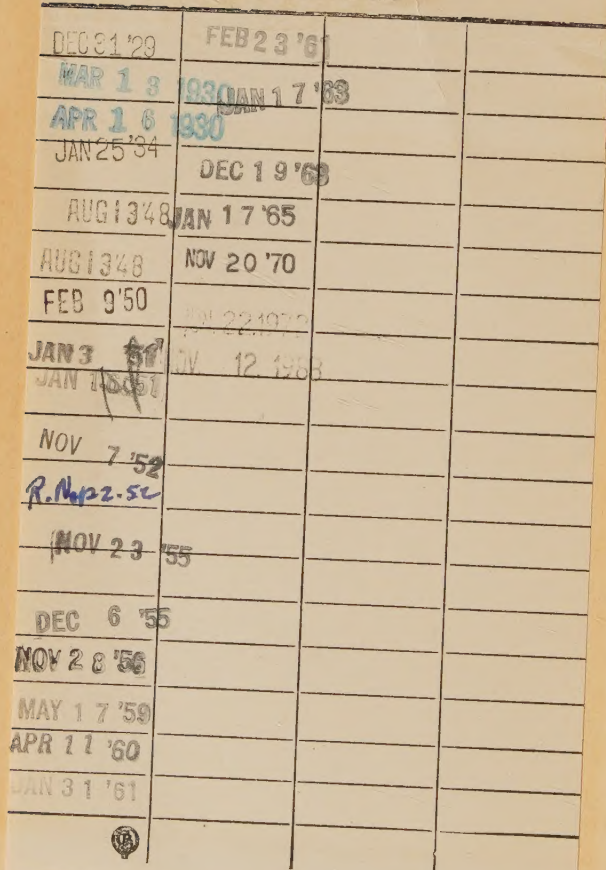 DEC 31 '29
MAR 13 1930
APR 16 1930
JAN 25 '34
AUG 13 '48
AUG 13 '48
FEB 9 '50
JAN 3 '51
JAN
NOV 7 '52
R.
NOV 23 '55
DEC 6 '55
NOV 28 '56
MAY 17 '59
APR 11 '60
JAN 31 '61
FEB 23 '61
JAN 17 '63
DEC 19 '63
JAN 17 '65
NOV 20 '70
22 1972
12 1988